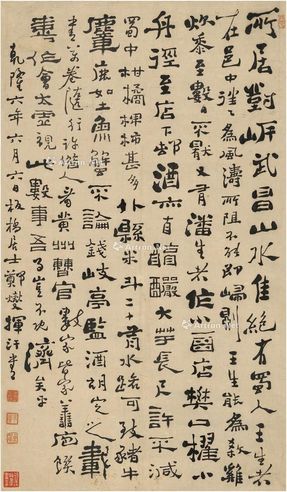 所居對岸武昌山水佳絕有蜀人王生者
在邑中往往為風濤所阻不能即歸則王生能為殺雞
炊黍至數日不厭又有潘生者作酒店樊口櫂小
舟徑至店下邨酒亦自醇釅大芋長尺許不減
蜀中柑橘椑柿甚多外縣米斗二十有水路可致豬牛
麞鹿如土魚蟹不論錢岐亭監酒胡定之載
書萬卷隨行許借人看黃州曹官數家皆家善庖饌
喜作會太虛視此數事吾事豈不既濟矣乎
乾隆六年六月六日板橋居士鄭燮揮汗書